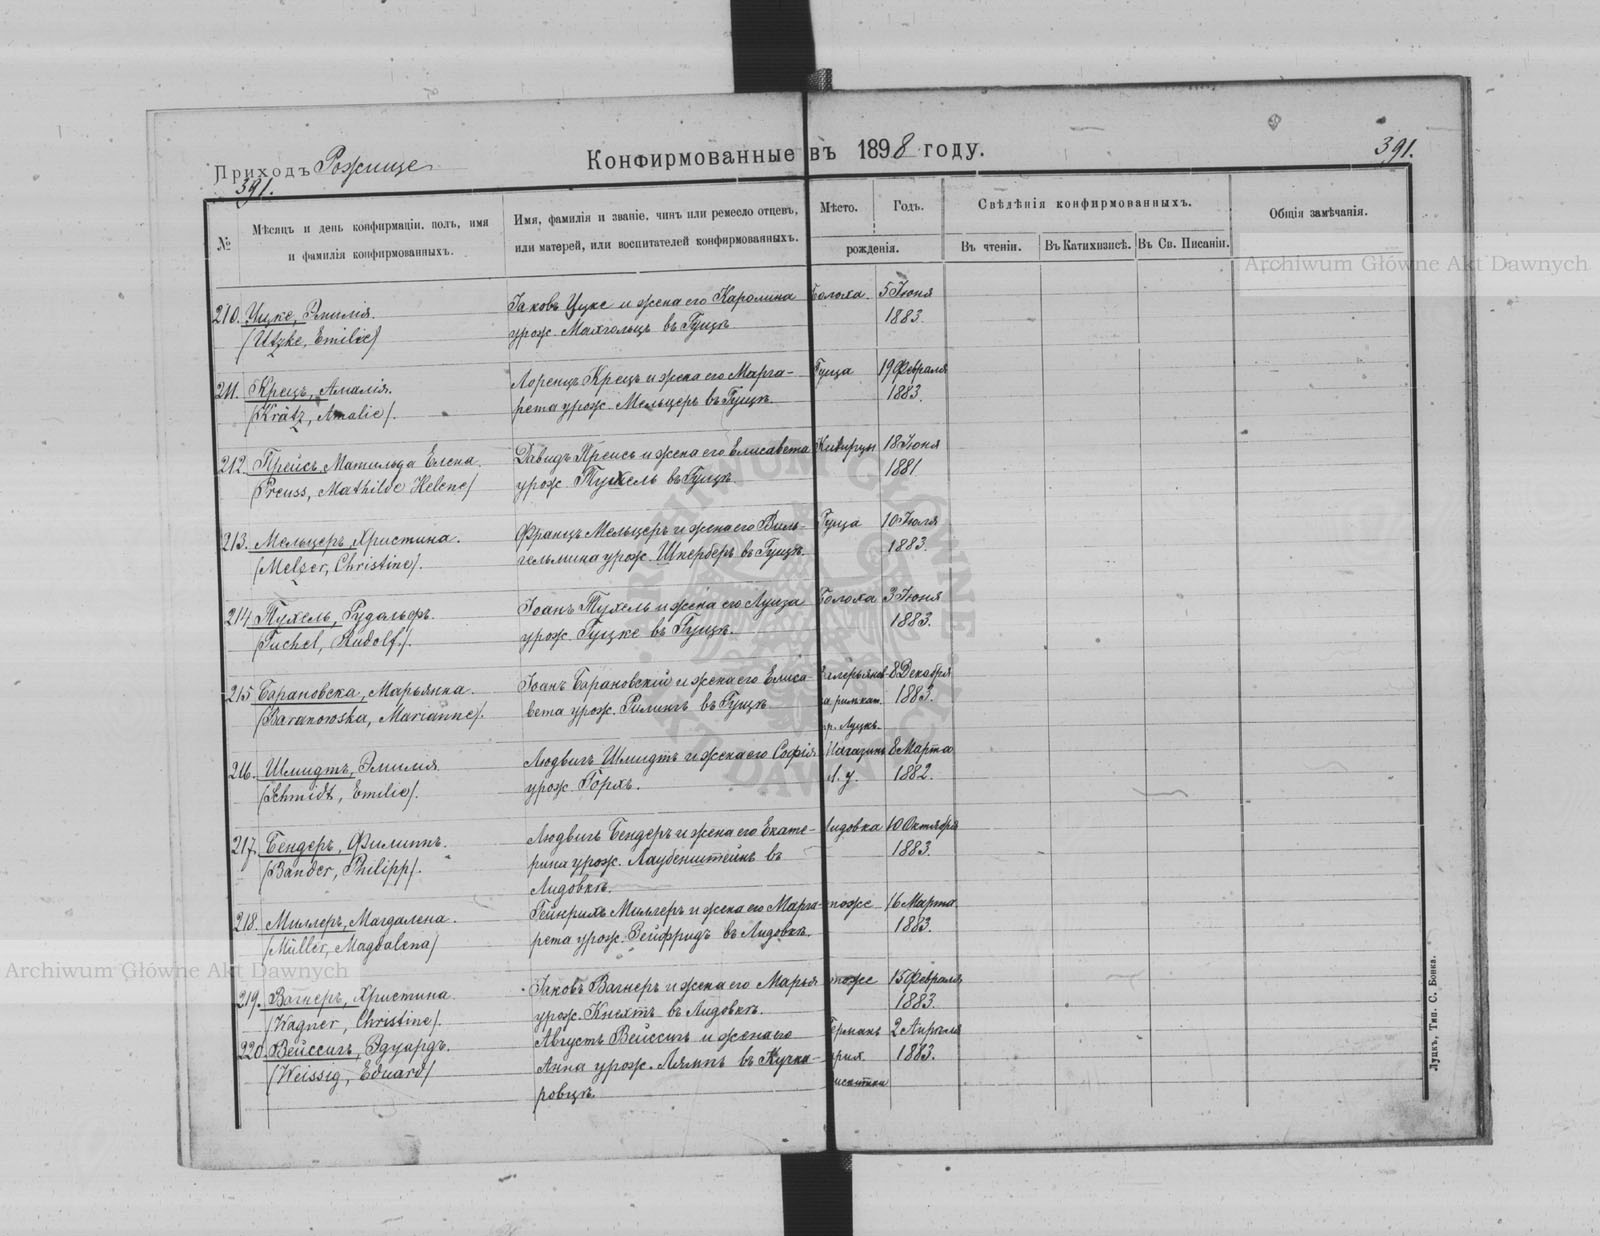 Приходъ Рожище
Конфирмованные въ 1898 году.
391.
391.
№
Мѣсяцъ и день конфирмаціи, полъ, имя
и фамилія конфирмованныхъ.
Имя, фамилія и званіе, чинъ или ремесло отцевъ,
или матерей, или воспитателей конфирмованныхъ.
Мѣсто.
Годъ.
рожденія.
Свѣдѣнія конфирмованныхъ.
Въ чтеніи.
Въ Катихизисѣ.
Въ Св. Писаніи.
Общія замѣчанія.
Archiwum Główne Akt Dawnych
210. Уцке, Эмилія. Іаковъ Уцке и жена его Каролина Голоха 5 Іюня
(Utzke, Emilie) урож. Махгольцъ въ Гущѣ 1883.
211. Крецъ, Амалія. Лоренцъ Крецъ и жена его Марга- Гуща 19 Февраля
(Krätz, Amalie). рета урож. Мельцеръ въ Гущѣ. 1883.
212. Прейсъ, Матильда Елена. Давидъ Прейсъ и жена его Елисавета 18 Іюня
(Preuss, Mathilde Helene) урож. Тухель въ Гущѣ. 1881.
213. Мельцеръ, Христина. Францъ Мельцеръ и жена его Виль- Гуща 10 Іюля
(Melzer, Christine). гельмина урож. Шперберъ въ Гущѣ. 1883.
214 Тухель, Рудольфъ. Іоанъ Тухель и жена его Луиза Голоха 3 Іюня
(Tuchel, Rudolf.). урож. Гуцке въ Гущѣ. 1883.
215 Барановска, Марьянна. Іоанъ Барановскій и жена его Елиса- 8 Декабря
(Baranowska, Marianne). вета урож. Рилингъ въ Гущѣ 1883.
пр. Луцкъ.
216. Шмидтъ, Эмилія Людвигъ Шмидтъ и жена его Софія 8 Марта
(Schmidt, Emilie). урож. Горхъ. Л. у. 1882.
217. Бендеръ, Филиппъ. Людвигъ Бендеръ и жена его Екате- Лидовка 10 Октября
(Bänder, Philipp). рина урож. Лаубенштейнъ въ 1883.
Лидовкѣ.
218. Миллеръ, Магдалена. Гейнрихъ Миллеръ и жена его Марга- тоже 16 Марта
(Müller, Magdalena) рета урож. Зейфридъ въ Лидовкѣ. 1883.
219. Вагнеръ, Христина. Іаковъ Вагнеръ и жена его Марья тоже 15 Февраля
(Wagner, Christine). урож. Кнехтъ въ Лидовкѣ. 1883.
220 Вейссигъ, Эдуардъ. Августъ Вейссигъ и жена его 2 Апрѣля
(Weissig, Eduard) Анна урож. Лямпъ въ Кучка- 1883.
ровцѣ.
Archiwum Główne Akt Dawnych
Луцкъ, Тип. С. Бонка.
ARCHIWUM GŁÓWNE AKT DAWNYCH